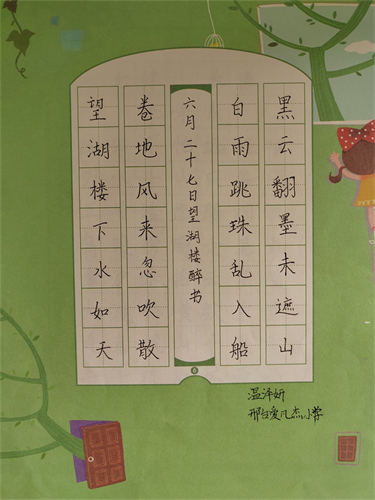 黑云翻墨未遮山
白雨跳珠乱入船
六月二十七日望湖楼醉书
卷地风来忽吹散
望湖楼下水如天
6
温泽妍
邢台爱凡杰小学